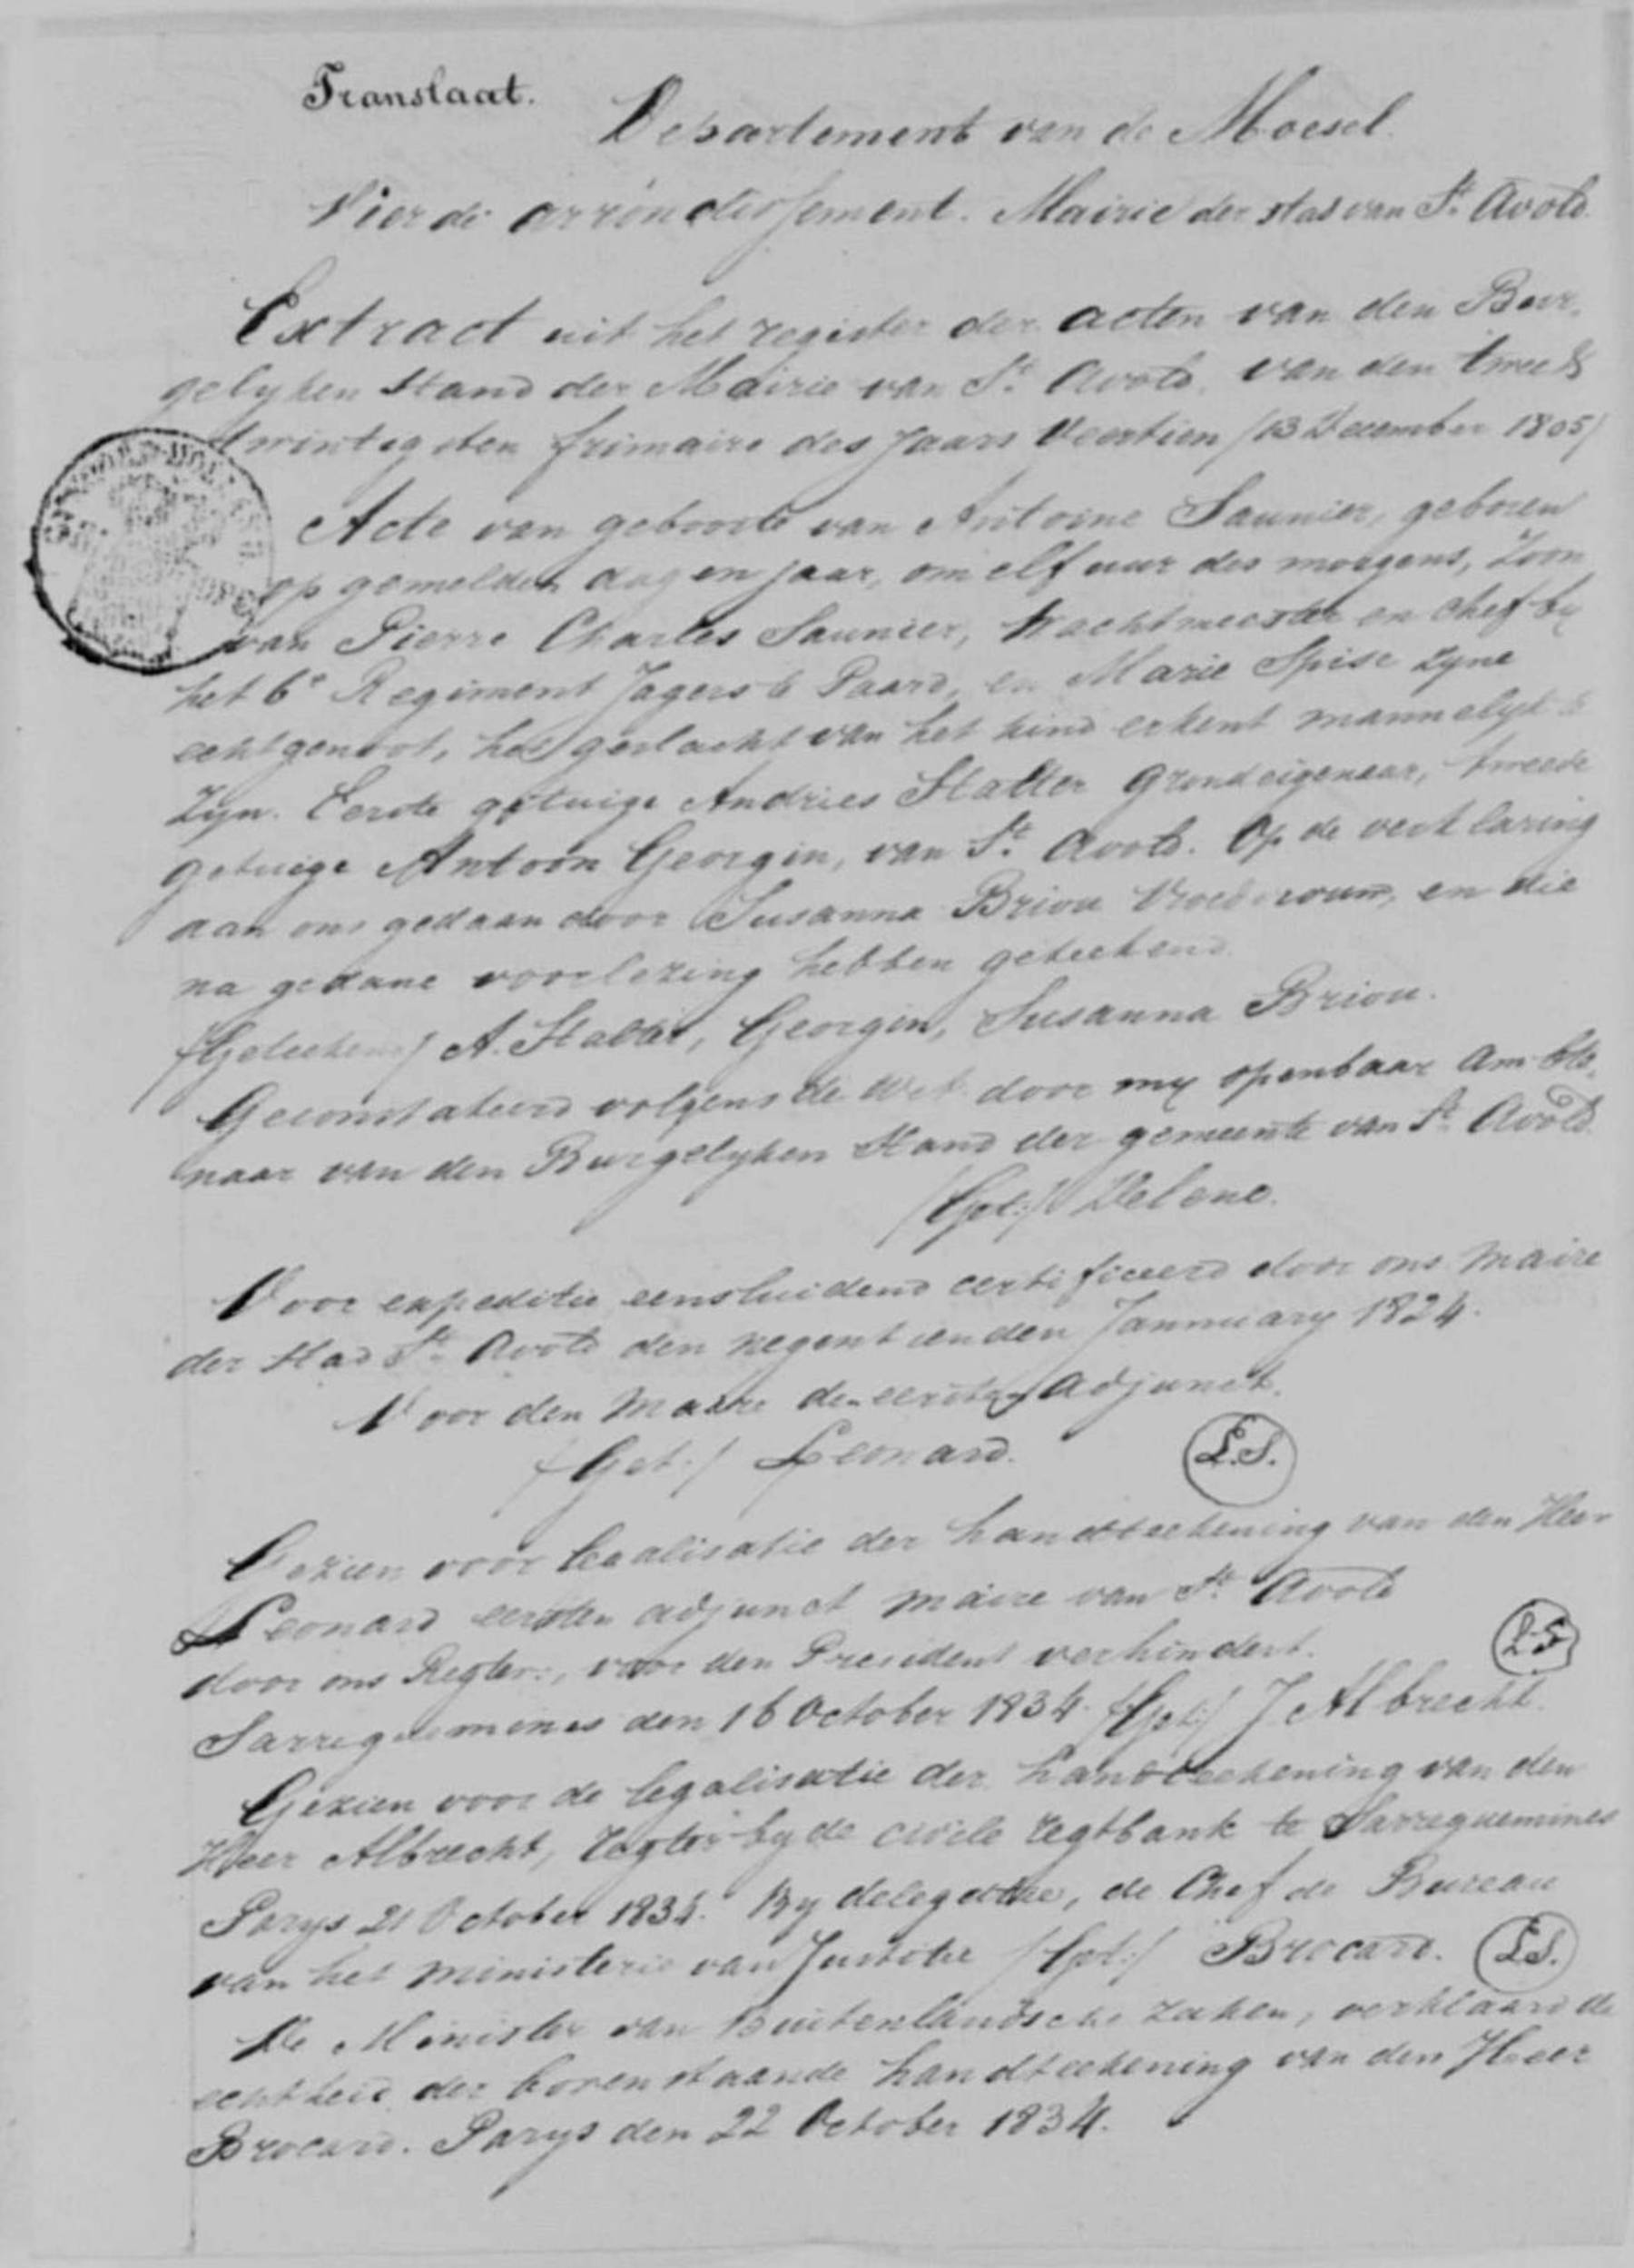 Translaat.
Departement van de Moesel.
Vierde arrondissement. Mairie der stad van St. Avold.
Extract uit het register der acten van den Bur-
gelyken Stand der Mairie van St. Avold, van den twee &
twintigsten frimaire des Jaars Veertien /13 December 1805/
Acte van geboorte van Antoine Saunier, geboren
op gemelden dag en jaar, om elf uur des morgens, Zoon
van Pierre Charles Saunier, Wachtmeester en chef by
het 6e Regiment Jagers te Paard, en Marie Spise zyne
echtgenoot, het geslacht van het kind erkent mannelyk te
Zyn. Eerste getuige Andries Stalter Grondeigenaar, tweede
getuige Antoon Georgin, van St. Avold. Op de verklaring
aan ons gedaan door Susanna Briou Vroedvrouw, en die
na gedane voorlezing hebben geteekend.
/Geteekend/ A. Stalter, Georgin, Susanna Briou.
Geconstateerd volgens de wet door my openbaar Ambte-
naar van den Burgelyken Stand der gemeente van St. Avold
/Get:/ Delene.
Voor expeditie eensluidend certificeerd door ons Maire
der Stad St. Avold den negentienden Jannuary 1824.
Voor den Maire den eersten Adjunct.
/Get:/ Leonard. L.S.
Gezien voor legalisatie der handteekening van den Heer
Leonard eersten adjunct maire van St. Avold
door ons Regter, voor den President verhindert. L.S
Sarreguemines den 16 October 1834. /Get:/ J. Albrecht.
Gezien voor de legalisatie der handteekening van den
Heer Albrecht, regter by de civile regtbank te Sarreguemines
Parys 21 October 1834. By delegatie, de Chef de Bureau
van het ministerie van Justitie /Get:/ Brocard. L.S.
De Minister van Buitenlandsche zaken, verklaard de
echtheid der bovenstaande handteekening van den Heer
Brocard. Parys den 22 October 1834.